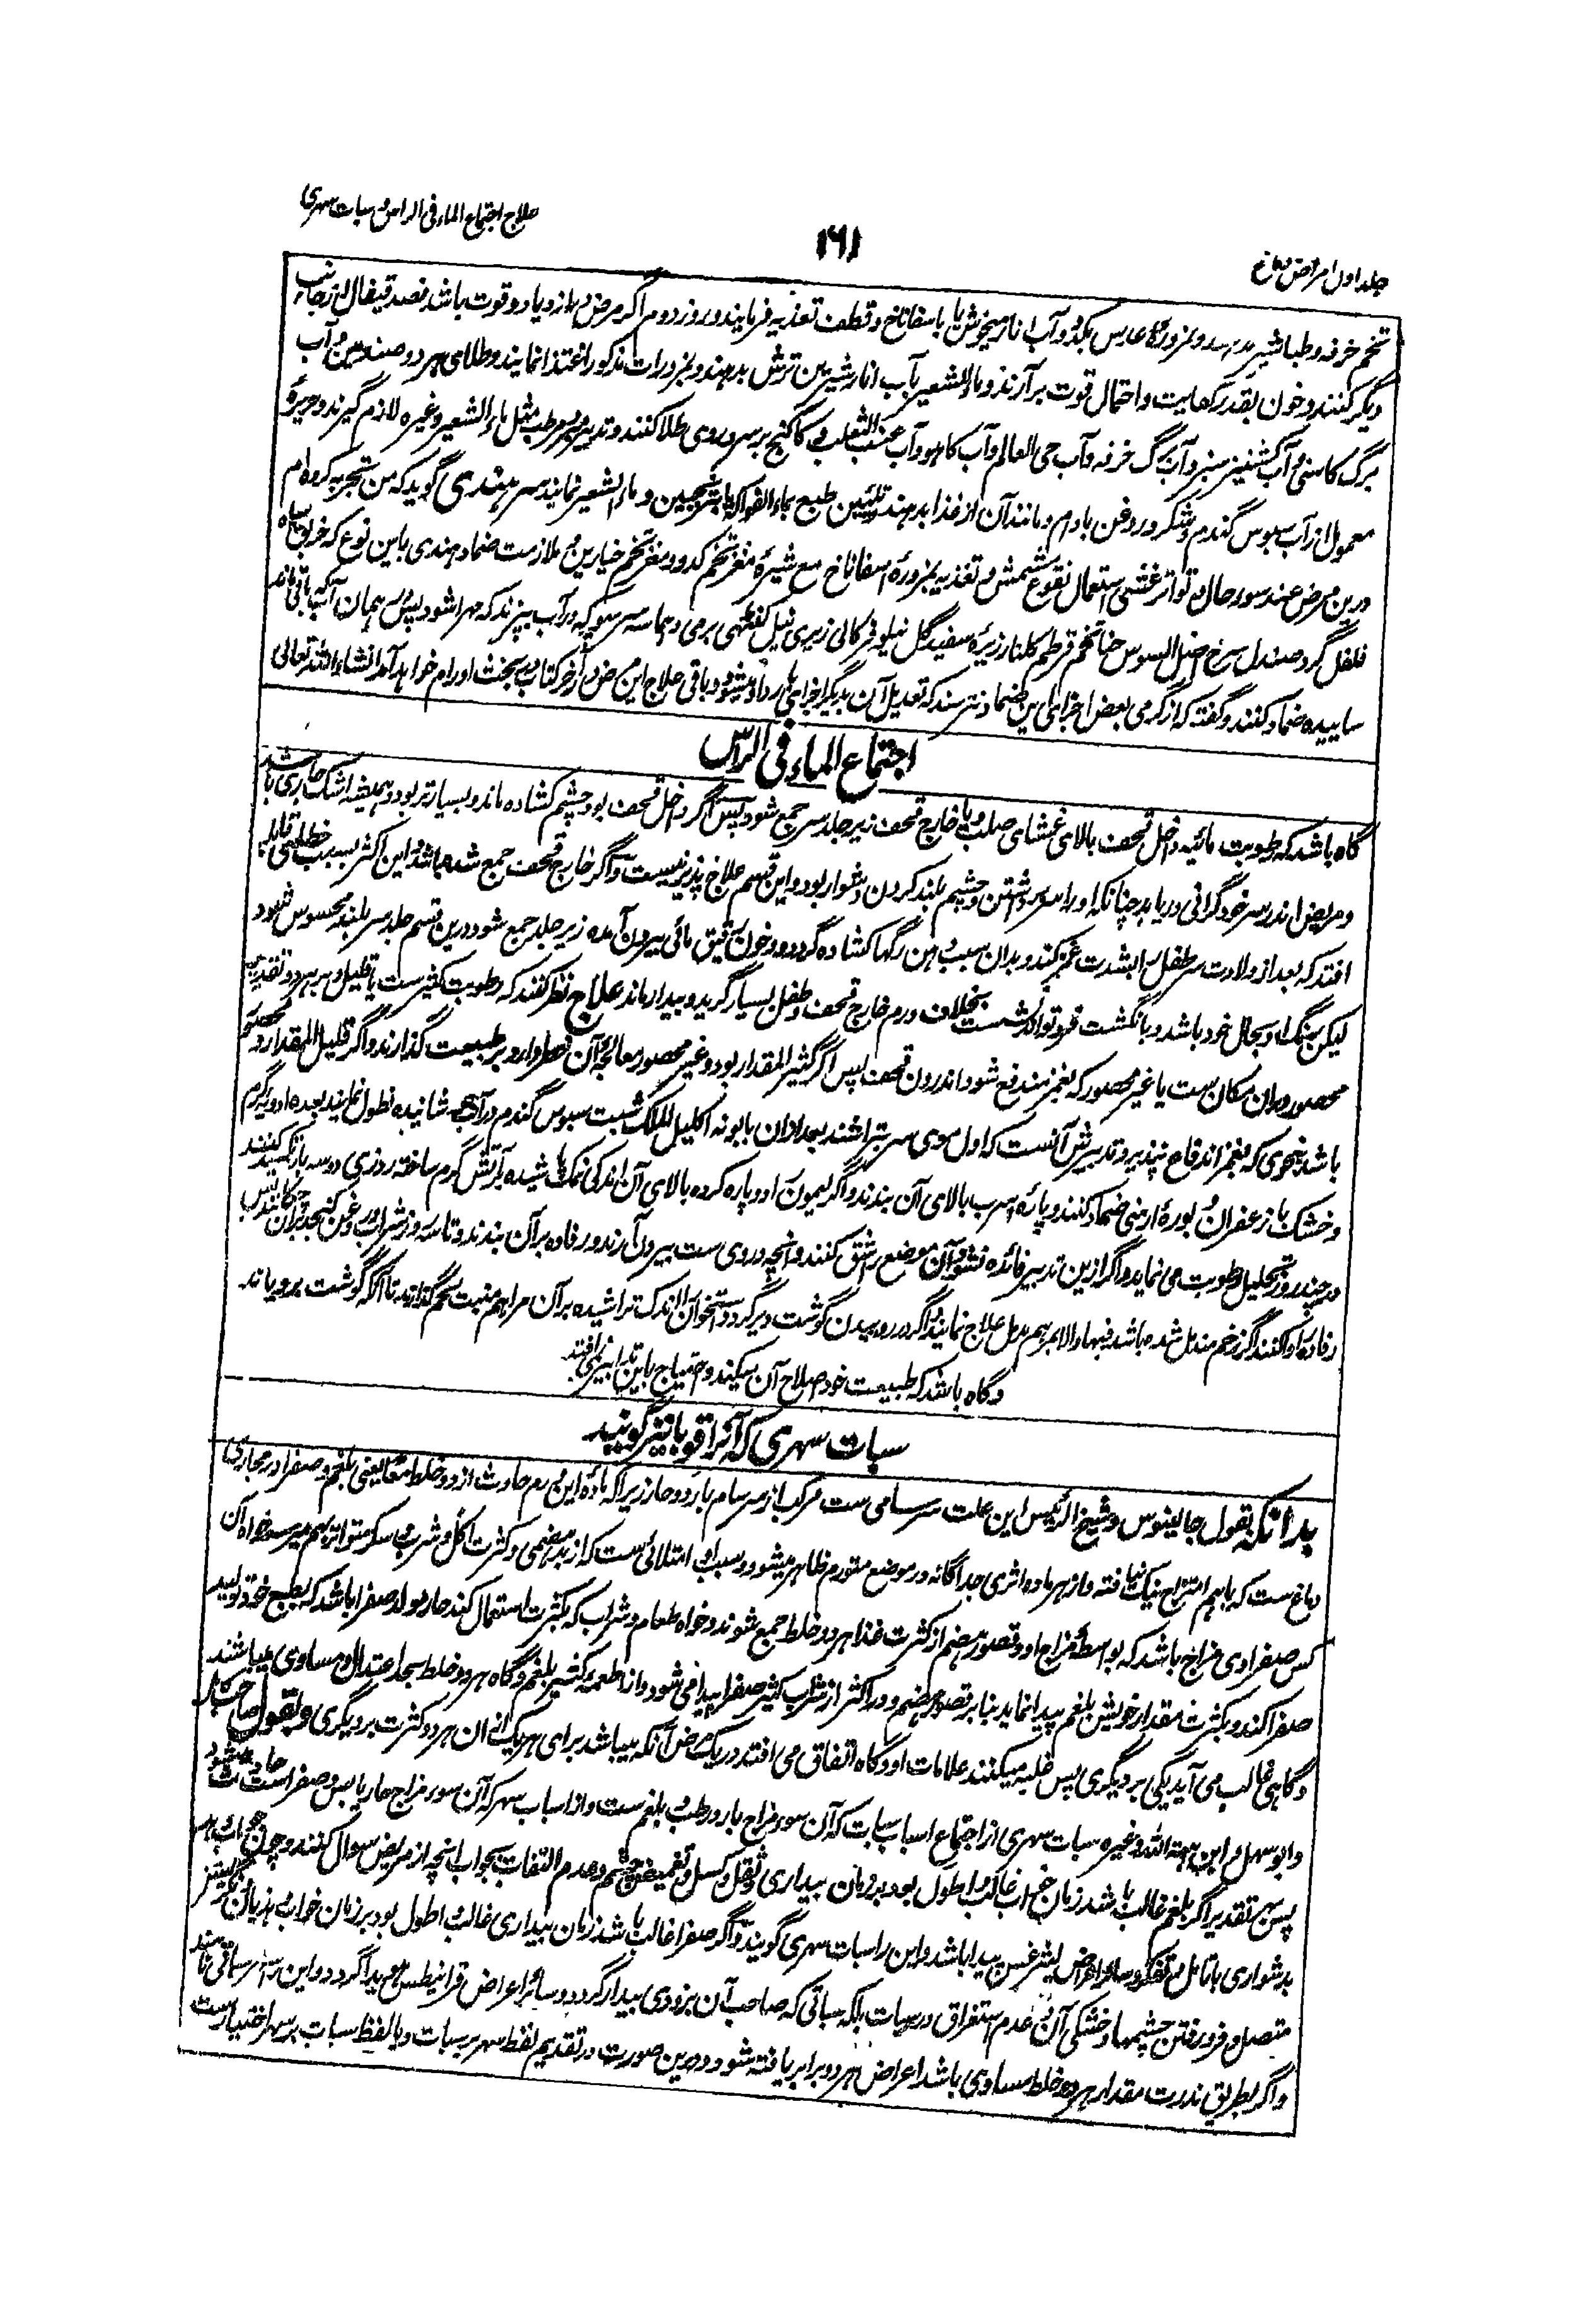 علاج اجتماع الماء فی الراس و سبات سهری
۱۶۱
جلد اول امراض دماغ
تخم خرفه و طباشیر بدهند و بمزورهٔ عدس بکدو و آب انار میخوش یا باسفاناخ و قطف تغذیه فرمایند و روز دوم اگر مرض در ازدیاد و قوت باشد فصد قیفال از جانب
دیگر کنند و خون بقدر کفایت و احتمال قوت بر آرند و ماء الشعیر بآب انار شیرین ترش بدهند و بمزورات مذکور اغتذا نمایند و طلای هر دو صندلین و آب
برگ کاسنی و آب کشنیز سبز و آب برگ خرفه و آب حی العالم و آب کاهو و آب عنب الثعلب و کاکنج بر سر و روی طلا کنند و تدبیر مبرد مرطب مثل ماء الشعیر و غیره لازم گیرند و حریرهٔ
معمول از آب سبوس گندم و شکر و روغن بادام و مانند آن از غذا بدهند و تلیین طبع بماء الفواکه یا ترنجبین و ماء الشعیر نمایند سرهندی گوید که من تجربه کرده ام
درین مرض عند سوء حال و تواتر غشی استعمال نقوع مشمش و تغذیه بمزورهٔ اسفاناخ مع شیرهٔ مغز تخم کدو و مغز تخم خیارین و ملازمت ضماد هندی باین نوع که خربق سیاه
فلفل گرد صندل سرخ اصل السوس حنا تخم قرطم گلنار زیرهٔ سفید گل نیلوفر کالی زیری نیل برمی و هماسه سرپهوکه در آب بپزند که مهرا شود پس همان آبکه باقی ماند
ساییده ضماد کنند و گفته که از گرمی بعض اجزای این ضماد نترسند که تعدیل آن بدیگر اجزای بارد او میشود و باقی علاج این مرض در آخر کتاب در بحث اورام خواهد آمد انشاء الله تعالی
اجتماع الماء فی الراس
گاه باشد که رطوبت مائیه داخل قحف بالای غشای صلب و یا خارج قحف زیر جلد سر جمع شود پس اگر داخل قحف بود چشم کشاده ماند و بسیار تر بود و همیشه اشک جاری باشد
و مریض اندر سر خود گرانی دریابد چنانکه او را سر برداشتن و چشم بلند کردن دشوار بود و این قسم علاج پذیر نیست و اگر خارج قحف جمع شده باشد و این اکثر بسبب خطای قابله
افتد که بعد از ولادت سر طفل را بشدت غمز کند و بدان سبب دهن رگها کشاده گردد و خون رقیق مائی بیرون آمده زیر جلد جمع شود درین قسم جلد سر بلند محسوس شود
لیکن برنگ او بحال خود باشد و بانگشت فرو توان نشست بخلاف ورم خارج قحف و طفل بسیار گرید و بیدار ماند علاج نظر کنند که رطوبت کثیر ست یا قلیل و بر هر دو تقدیر
محصور در ان مکان ست یا غیر محصور که بغمز مندفع شود اندرون قحف پس اگر کثیر المقدار بود و غیر محصور معالجهٔ آن خطر دارد بر طبیعت گذارند و اگر قلیل المقدار و محصور
باشد بنحوی که بغمز اندفاع نپذیرد تدبیرش آنست که اول موی سر بتراشند بعد ازان بابونه اکلیل الملک شبت سبوس گندم در آب جوشانیده نطول نمایند بعده ادویهٔ گرم
و خشک باز زعفران و بورهٔ ارمنی ضماد کنند و پارهٔ سرب بالای آن بندند و اگر لیمون را دو پاره کرده بالای آن اندکی نمک پاشیده بآتش گرم ساخته روزی دو سه بار تکمید کنند
در چند روز تحلیل رطوبت می نماید و اگر ازین تدبیر فائده نشود آن موضع را شق کنند و آنچه در وی ست بیرون آرند و رفاده بر آن بندند و تا سه روز شراب و روغن کنجد بران چکانند پس
رفاده را وا کنند اگر زخم مندمل شده باشد فبها و الا بمرهم مدمل علاج نمایند و اگر در روییدن گوشت دیر گردد استخوان را اندک تراشیده بر آن مراهم منبت لحم گذارند تا آنکه گوشت برویاند
و گاه باشد که طبیعت خود اصلاح آن میکند و احتیاج باین تدابیر نمی افتد
سبات سهری که آنرا قوما نیز گویند
بدانکه بقول جالینوس و شیخ الرئیس این علت سرسامی ست مرکب از سرسام بارد و حار زیرا که مادهٔ این ورم حادث از دو خلط معًا یعنی بلغم و صفرا در مجاری
دماغ ست که باهم امتزاج نیک نیافته و از هر ماده اثری جداگانه در موضع متورم ظاهر میشود و سبب او امتلائی ست که از بدهضمی و کثرت اکل و شرب و سکر متواتر بهم میرسد خواه آن
کس صفراوی مزاج باشد که بواسطهٔ مزاج او و قصور هضم از کثرت غذا هر دو خلط جمع شوند و خواه طعام و شراب که بکثرت استعمال کند حار مولد صفرا باشد که بطبع خود تولید
صفرا کند و بکثرت مقدار خویش بلغم پیدا نماید بنابر قصور هضم و در اکثر از شراب کثیر صفرا پیدا می شود و از اطعمهٔ کثیر بلغم و گاه هر دو خلط بحد اعتدال و مساوی میباشند
و گاهی غالب می آید یکی بر دیگری پس غلبه میکنند علامات او و گاه اتفاق می افتد در یک مرض آنکه میباشد برای هر یک ازان هر دو کثرت بر دیگری و بقول صاحب کامل
و ابو سهل و ابن هبة الله و غیره سبات سهری از اجتماع اسباب سبات که آن سوء مزاج بارد رطب و بلغم ست و از اسباب سهر که آن سوء مزاج حار یابس و صفراست حادث میشود
پس بهر تقدیر اگر بلغم غالب باشد زمان خواب غالب و اطول بود بر زمان بیداری و ثقل و کسل و تغمیض چشم و عدم التفات بجواب آنچه از مریض سوال کنند و چون جواب دهد
بدشواری با تامل و تفکر و سائر اعراض لیثرغس پیدا باشد و این را سبات سهری گویند و اگر صفرا غالب باشد زمان بیداری غالب و اطول بود بر زمان خواب و هذیان
متصل و فرو رفتن چشمها و خشکی آن و عدم استغراق در سبات بلکه سباتی که صاحب آن بزودی بیدار گردد و سائر اعراض قرانیطس پیدا گردد و این را سهر سباتی نامند
و اگر بطریق ندرت مقدار هر دو خلط مساوی باشد اعراض هر دو برابر یافته شود و درین صورت در تقدیم لفظ سهر بر سبات و یا لفظ سبات بر سهر اختیارست